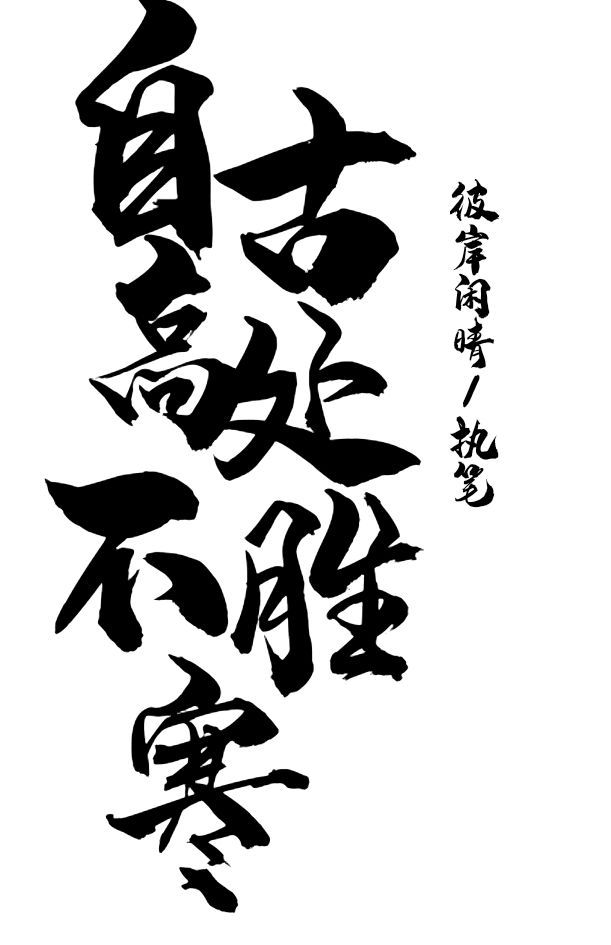 自古
高处
不胜
寒
彼岸闲晴/执笔